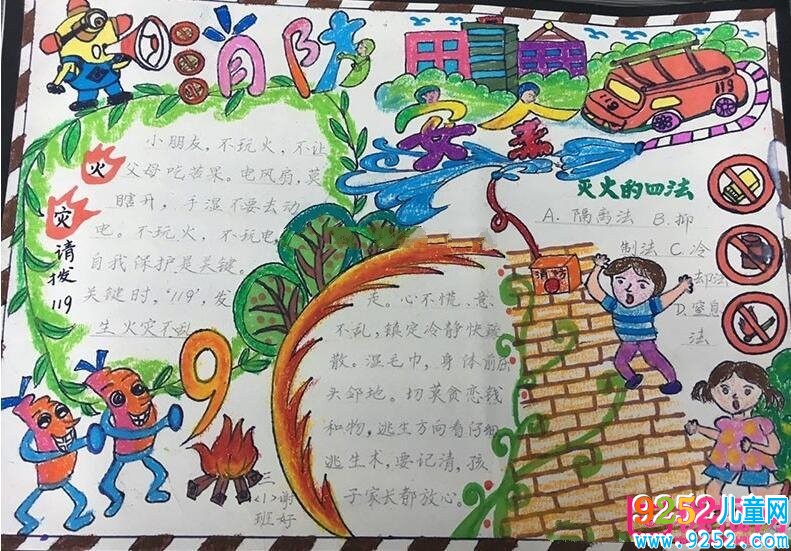 消防
安全
119
119
火灾请拨119
小朋友，不玩火，不让
父母吃苦果。电风扇，莫
瞎开，手湿不要去动
电。不玩火，不玩电，
自我保护是关键。
关键时，'119'发
生火灾不乱
走。心不慌，意
不乱，镇定冷静快疏
散。湿毛巾，身体前
头邻地。切莫食恋钱
和物，逃生方向看仔细
逃生术，要记清，孩
子家长都放心。
灭火的四法
A. 隔离法 B. 抑
制法 C. 冷
却法
D. 窒息
法
三
<1>
班
9252儿童网
www.9252.com